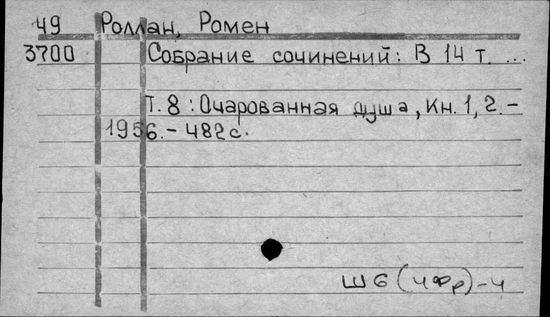 49 Роллан, Ромен
3700 Собрание сочинений: В 14 т. ...
Т. 8: Очарованная душа, Кн. 1, 2. -
1956. - 482 с.
Ш6(4Фр)-4